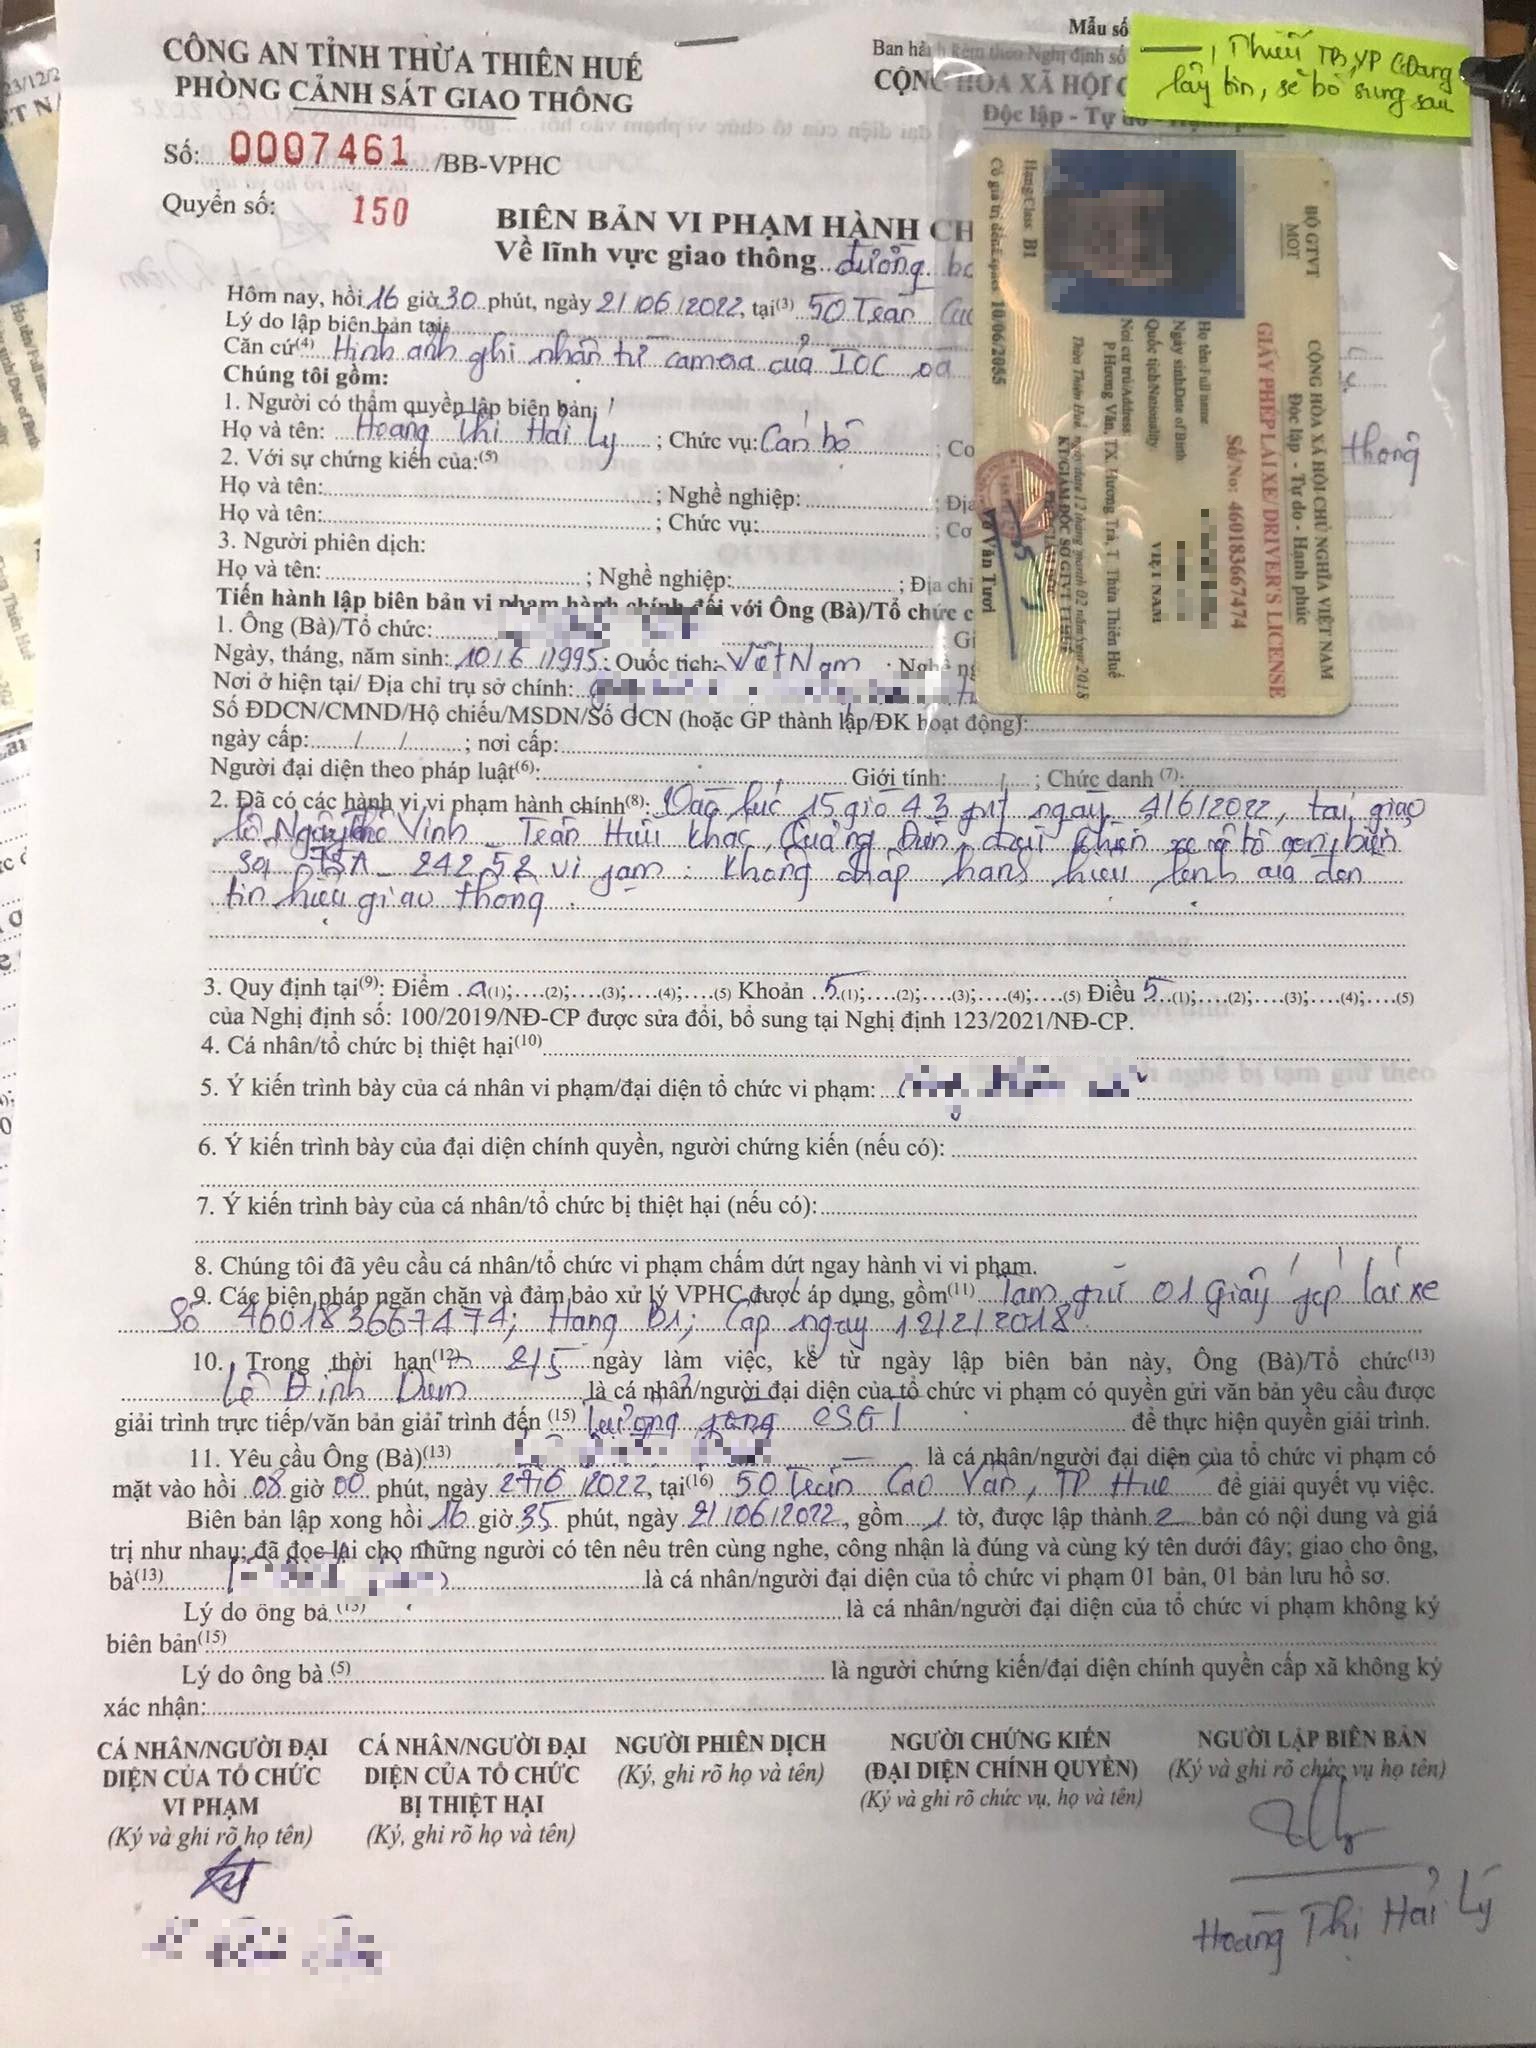 CÔNG AN TỈNH THỪA THIÊN HUẾ
PHÒNG CẢNH SÁT GIAO THÔNG
Số: 0007461 /BB-VPHC
Quyển số: 150
Mẫu số
Ban hành kèm theo Nghị định số
CỘNG HÒA XÃ HỘI C
Độc lập - Tự do - Hạnh phúc
Thiếu TB, VP Đang
lấy tin, sẽ bổ sung sau
BIÊN BẢN VI PHẠM HÀNH CH
Về lĩnh vực giao thông đường bộ
Hôm nay, hồi 16 giờ 30 phút, ngày 21/06/2022, tại(3) 50 Trần Cao
Lý do lập biên bản tại:
Căn cứ(4) Hình ảnh ghi nhận từ camera của IOC
Chúng tôi gồm:
1. Người có thẩm quyền lập biên bản:
Họ và tên: Hoàng Thị Hải Lý ; Chức vụ: Cán bộ ; Cơ
thông
2. Với sự chứng kiến của:(5)
Họ và tên: ; Nghề nghiệp: ; Địa
Họ và tên: ; Chức vụ: ; Cơ
3. Người phiên dịch:
Họ và tên: ; Nghề nghiệp: ; Địa chỉ
Tiến hành lập biên bản vi phạm hành chính đối với Ông (Bà)/Tổ chức c
1. Ông (Bà)/Tổ chức: Gi
Ngày, tháng, năm sinh: 10/6/1995; Quốc tịch: Việt Nam ; Nghề ng
Nơi ở hiện tại/ Địa chỉ trụ sở chính:
Số ĐDCN/CMND/Hộ chiếu/MSDN/Số GCN (hoặc GP thành lập/ĐK hoạt động):
ngày cấp: / / ; nơi cấp:
Người đại diện theo pháp luật(6): Giới tính: ; Chức danh (7):
BỘ GTVT
MOT
CỘNG HÒA XÃ HỘI CHỦ NGHĨA VIỆT NAM
Độc lập - Tự do - Hạnh phúc
GIẤY PHÉP LÁI XE/ DRIVER'S LICENSE
Số/No: 460183667474
Họ tên/Full name
Ngày sinh/Date of Birth
Quốc tịch/Nationality VIỆT NAM
Nơi cư trú/Address
P. Hương Văn, TX. Hương Trà, T. Thừa Thiên Huế
Thừa Thiên Huế, ngày/date 12 tháng/month 02 năm/year 2018
KT/GIÁM ĐỐC SỞ GTVT
Võ Văn Tươi
Hạng/Class B1
Có giá trị đến/Expires 10/06/2055
2. Đã có các hành vi vi phạm hành chính(8): Vào lúc 15 giờ 43 phút ngày 4/6/2022, tại giao
lộ Ngã Vinh Trần Hữu khác, điều khiển xe ô tô con, biển
số 75A - 242.52 vi phạm : Không chấp hành hiệu lệnh của đèn
tín hiệu giao thông
3. Quy định tại(9): Điểm a(1);....(2);....(3);....(4);....(5) Khoản 5(1);....(2);....(3);....(4);....(5) Điều 5(1);....(2);....(3);....(4);....(5)
của Nghị định số: 100/2019/NĐ-CP được sửa đổi, bổ sung tại Nghị định 123/2021/NĐ-CP.
4. Cá nhân/tổ chức bị thiệt hại(10)
5. Ý kiến trình bày của cá nhân vi phạm/đại diện tổ chức vi phạm:
6. Ý kiến trình bày của đại diện chính quyền, người chứng kiến (nếu có):
7. Ý kiến trình bày của cá nhân/tổ chức bị thiệt hại (nếu có):
8. Chúng tôi đã yêu cầu cá nhân/tổ chức vi phạm chấm dứt ngay hành vi vi phạm.
9. Các biện pháp ngăn chặn và đảm bảo xử lý VPHC được áp dụng, gồm(11) Tạm giữ 01 Giấy phép lái xe
Số 460183667474; Hạng B1; Cấp ngày 12/2/2018
10. Trong thời hạn(12) 2/5 ngày làm việc, kể từ ngày lập biên bản này, Ông (Bà)/Tổ chức(13)
Lê Đình là cá nhân/người đại diện của tổ chức vi phạm có quyền gửi văn bản yêu cầu được
giải trình trực tiếp/văn bản giải trình đến (15) trưởng phòng CSGT để thực hiện quyền giải trình.
11. Yêu cầu Ông (Bà)(13) là cá nhân/người đại diện của tổ chức vi phạm có
mặt vào hồi 08 giờ 00 phút, ngày 27/6/2022, tại(16) 50 Trần Cao Vân, TP Huế để giải quyết vụ việc.
Biên bản lập xong hồi 16 giờ 35 phút, ngày 21/06/2022, gồm 1 tờ, được lập thành 2 bản có nội dung và giá
trị như nhau; đã đọc lại cho những người có tên nêu trên cùng nghe, công nhận là đúng và cùng ký tên dưới đây; giao cho ông,
bà(13) là cá nhân/người đại diện của tổ chức vi phạm 01 bản, 01 bản lưu hồ sơ.
Lý do ông bà (13) là cá nhân/người đại diện của tổ chức vi phạm không ký
biên bản(15)
Lý do ông bà (5) là người chứng kiến/đại diện chính quyền cấp xã không ký
xác nhận:
CÁ NHÂN/NGƯỜI ĐẠI DIỆN CỦA TỔ CHỨC VI PHẠM
(Ký và ghi rõ họ tên)
CÁ NHÂN/NGƯỜI ĐẠI DIỆN CỦA TỔ CHỨC BỊ THIỆT HẠI
(Ký, ghi rõ họ và tên)
NGƯỜI PHIÊN DỊCH
(Ký, ghi rõ họ và tên)
NGƯỜI CHỨNG KIẾN
(ĐẠI DIỆN CHÍNH QUYỀN)
(Ký và ghi rõ chức vụ, họ và tên)
NGƯỜI LẬP BIÊN BẢN
(Ký và ghi rõ chức vụ họ tên)
Hoàng Thị Hải Lý